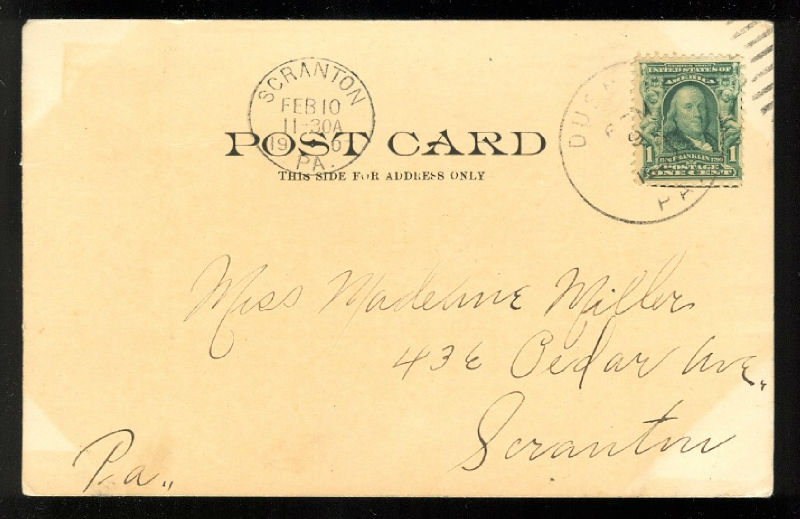 SCRANTON
FEB 10
11-30A
PA.
POST CARD
THIS SIDE FOR ADDRESS ONLY
UNITED STATES OF
AMERICA
1 1
POSTAGE
ONE CENT
PA
Miss Madeline Miller
436 Cedar Ave.
Scranton
Pa.